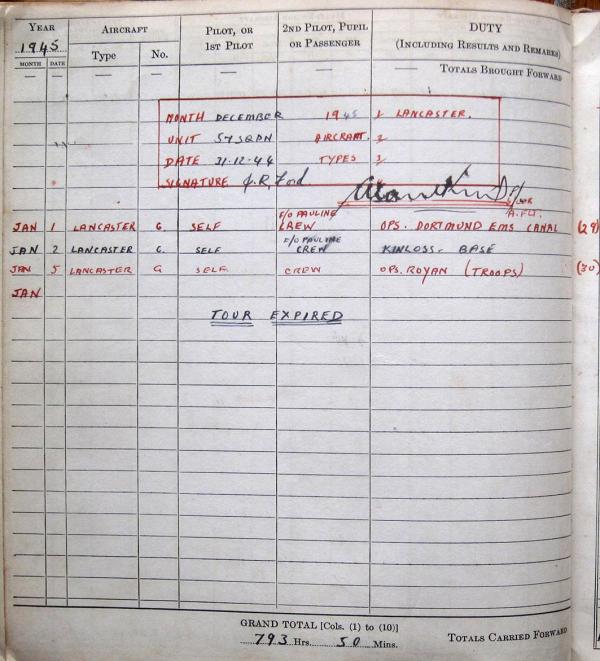 YEAR AIRCRAFT PILOT, OR 1ST PILOT 2ND PILOT, PUPIL OR PASSENGER DUTY (INCLUDING RESULTS AND REMARKS)
1945
MONTH DATE Type No.
— — — — — — — TOTALS BROUGHT FORWARD
MONTH DECEMBER 1945 1 LANCASTER.
UNIT 57 SQDN AIRCRAFT. 2
DATE 31-12-44 TYPES 3
SIGNATURE J.R. Ford.
JAN 1 LANCASTER G. SELF F/O PAULINE CREW OPS. DORTMUND EMS CANAL (29)
JAN 2 LANCASTER G. SELF F/O PAULINE CREW KINLOSS - BASE
JAN 5 LANCASTER G SELF CREW OPS. ROYAN (TROOPS) (30)
JAN
TOUR EXPIRED
GRAND TOTAL [Cols. (1) to (10)]
793 Hrs. 50 Mins. TOTALS CARRIED FORWARD